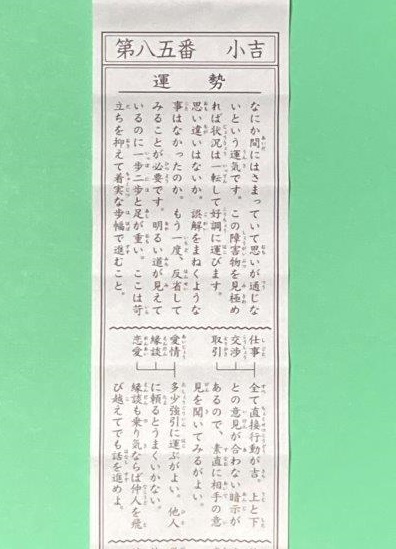 第八五番 小吉
運勢
なにか間にはさまっていて思いが通じな
いという運気です。この障害物を見極め
れば状況は一転して好調に運びます。
思い違いはないか。誤解をまねくような
事はなかったのか。もう一度、反省して
みることが必要です。明るい道が見えて
いるのに一歩二歩と足が重い。ここは苛
立ちを抑えて着実な歩幅で進むこと。
仕事
交渉
取引
全て直接行動が吉。上と下
との意見が合わない暗示が
あるので、素直に相手の意
見を聞いてみるがよい。
愛情
縁談
恋愛
多少強引に運ぶがよい。他人
に頼るとうまくいかない。
縁談も乗り気ならば仲人を飛
び越えてでも話を進めよ。